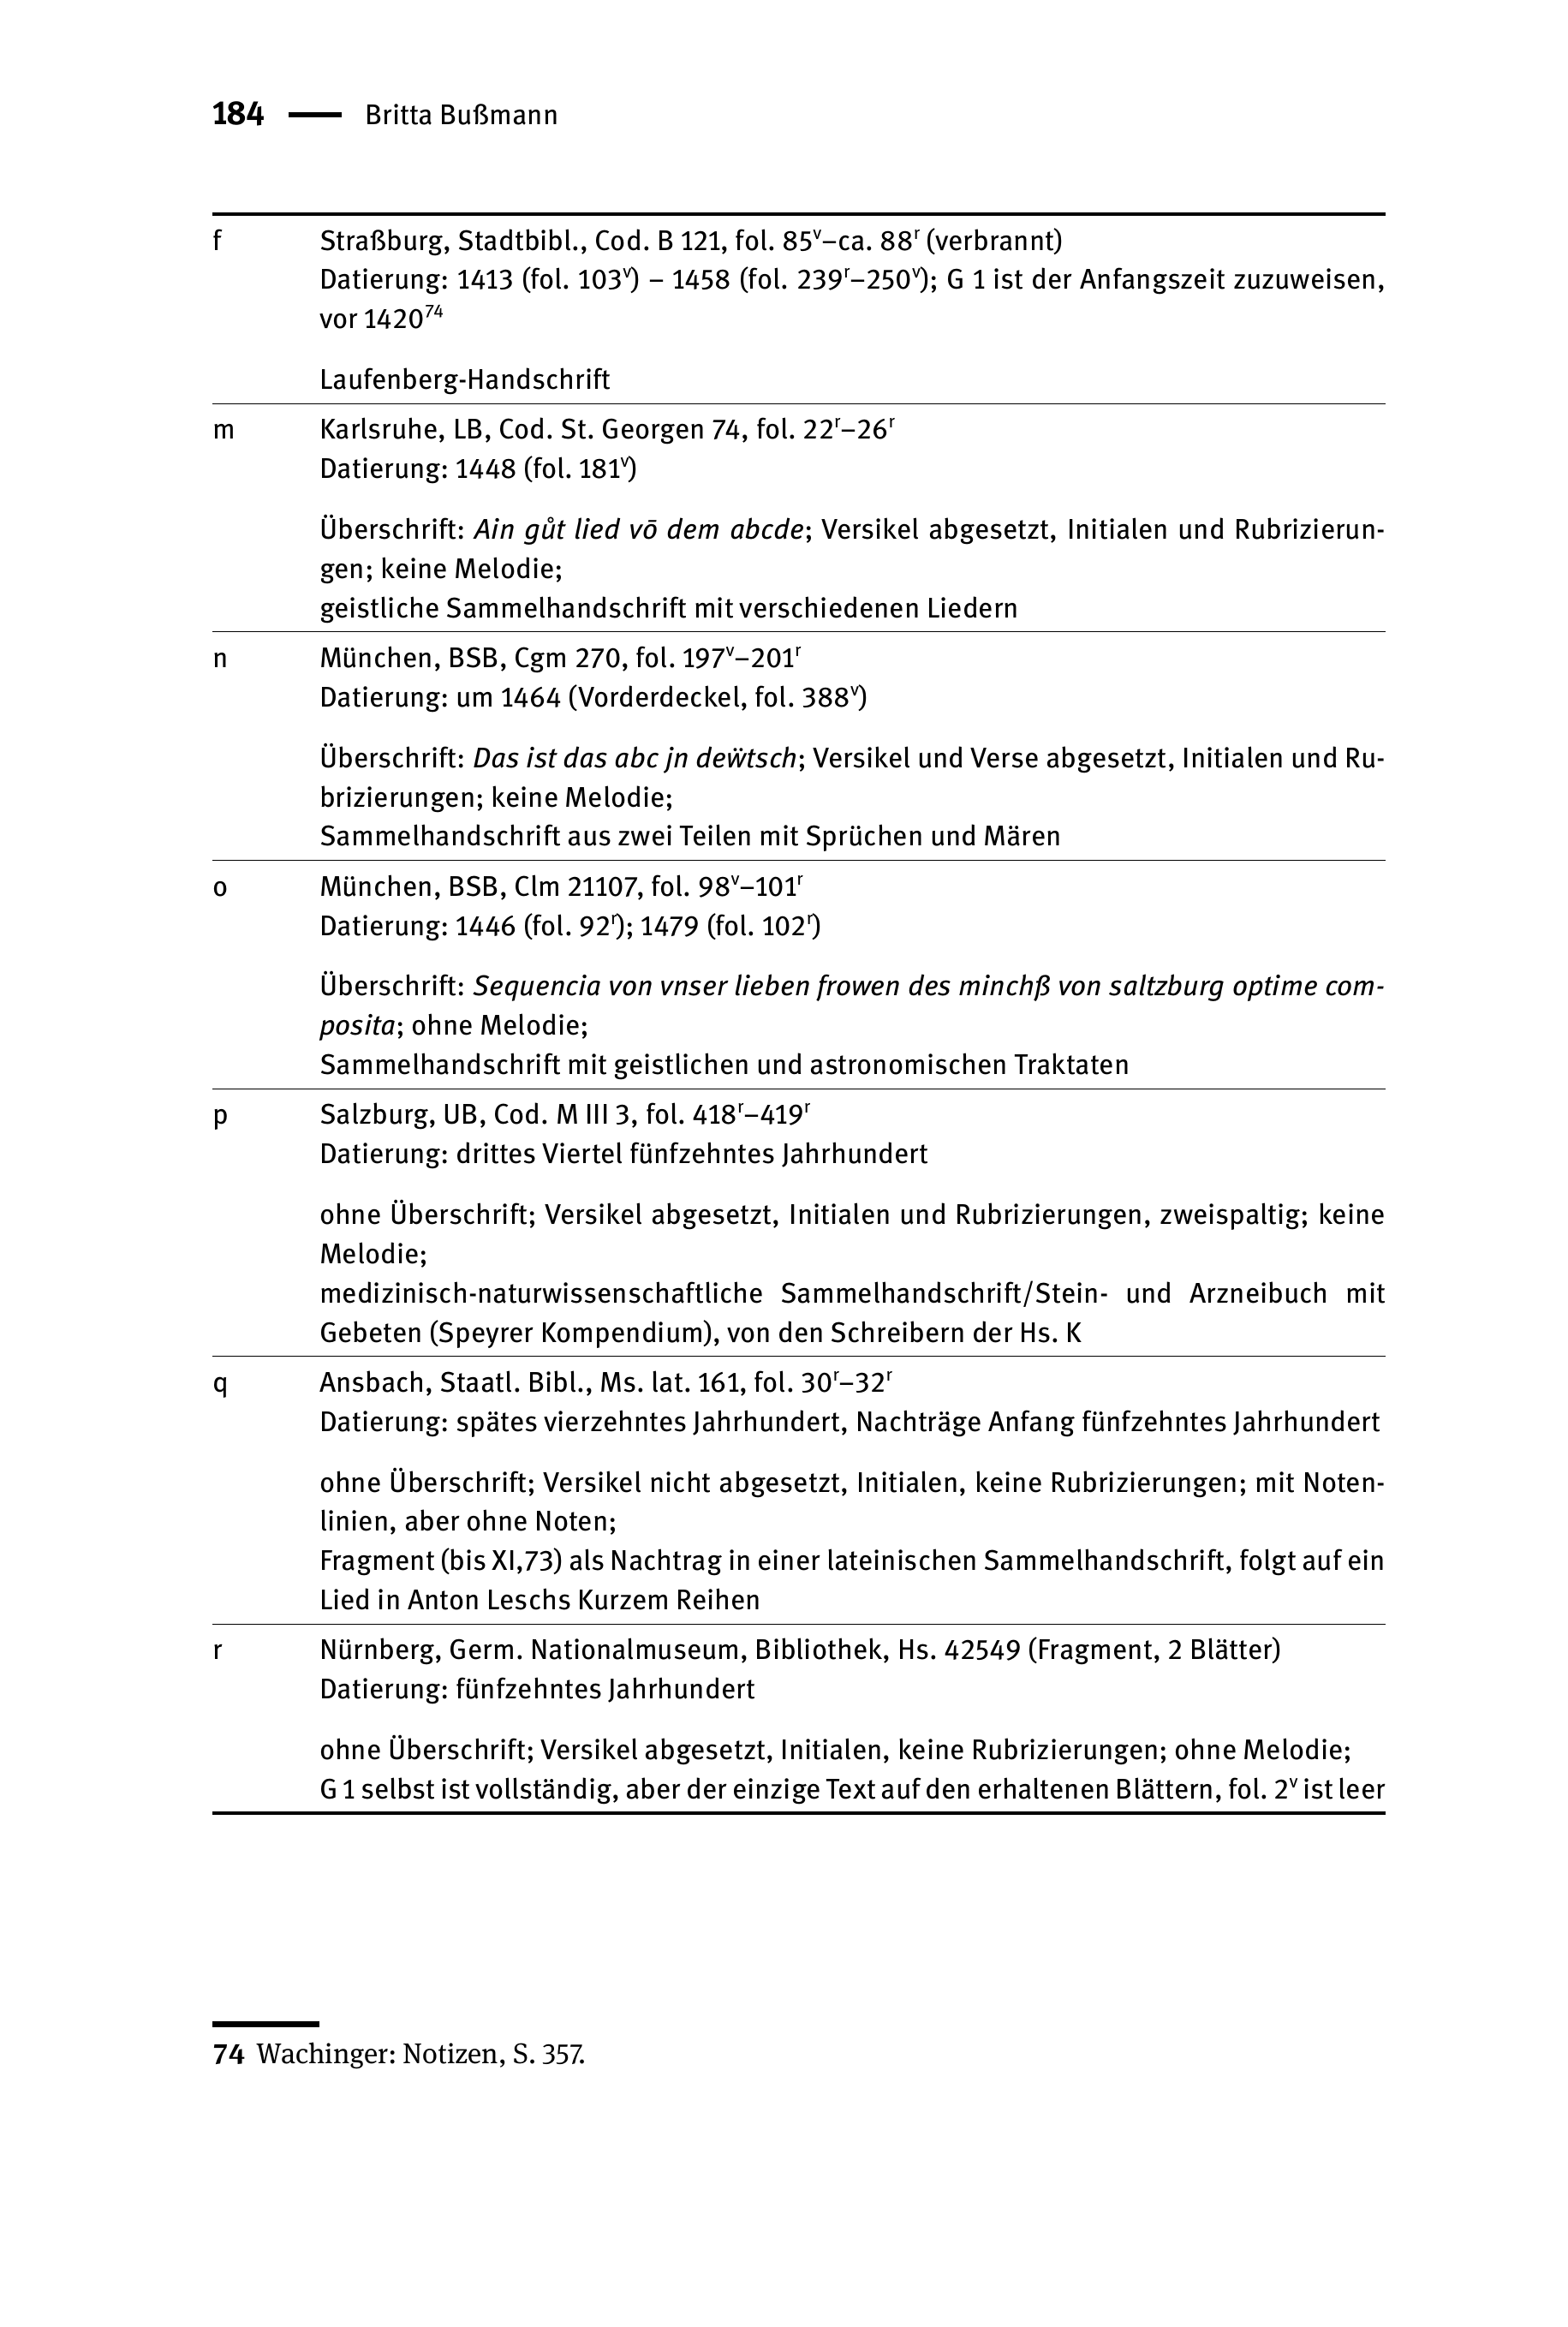 184 — Britta Bußmann
f Straßburg, Stadtbibl., Cod. B 121, fol. 85ᵛ–ca. 88ʳ (verbrannt)
Datierung: 1413 (fol. 103ᵛ) – 1458 (fol. 239ʳ–250ᵛ); G 1 ist der Anfangszeit zuzuweisen,
vor 1420⁷⁴
Laufenberg-Handschrift
m Karlsruhe, LB, Cod. St. Georgen 74, fol. 22ʳ–26ʳ
Datierung: 1448 (fol. 181ᵛ)
Überschrift: Ain gůt lied vō dem abcde; Versikel abgesetzt, Initialen und Rubrizierun-
gen; keine Melodie;
geistliche Sammelhandschrift mit verschiedenen Liedern
n München, BSB, Cgm 270, fol. 197ᵛ–201ʳ
Datierung: um 1464 (Vorderdeckel, fol. 388ᵛ)
Überschrift: Das ist das abc jn deẅtsch; Versikel und Verse abgesetzt, Initialen und Ru-
brizierungen; keine Melodie;
Sammelhandschrift aus zwei Teilen mit Sprüchen und Mären
o München, BSB, Clm 21107, fol. 98ᵛ–101ʳ
Datierung: 1446 (fol. 92ʳ); 1479 (fol. 102ʳ)
Überschrift: Sequencia von vnser lieben frowen des minchß von saltzburg optime com-
posita; ohne Melodie;
Sammelhandschrift mit geistlichen und astronomischen Traktaten
p Salzburg, UB, Cod. M III 3, fol. 418ʳ–419ʳ
Datierung: drittes Viertel fünfzehntes Jahrhundert
ohne Überschrift; Versikel abgesetzt, Initialen und Rubrizierungen, zweispaltig; keine
Melodie;
medizinisch-naturwissenschaftliche Sammelhandschrift/Stein- und Arzneibuch mit
Gebeten (Speyrer Kompendium), von den Schreibern der Hs. K
q Ansbach, Staatl. Bibl., Ms. lat. 161, fol. 30ʳ–32ʳ
Datierung: spätes vierzehntes Jahrhundert, Nachträge Anfang fünfzehntes Jahrhundert
ohne Überschrift; Versikel nicht abgesetzt, Initialen, keine Rubrizierungen; mit Noten-
linien, aber ohne Noten;
Fragment (bis XI,73) als Nachtrag in einer lateinischen Sammelhandschrift, folgt auf ein
Lied in Anton Leschs Kurzem Reihen
r Nürnberg, Germ. Nationalmuseum, Bibliothek, Hs. 42549 (Fragment, 2 Blätter)
Datierung: fünfzehntes Jahrhundert
ohne Überschrift; Versikel abgesetzt, Initialen, keine Rubrizierungen; ohne Melodie;
G 1 selbst ist vollständig, aber der einzige Text auf den erhaltenen Blättern, fol. 2ᵛ ist leer
74 Wachinger: Notizen, S. 357.